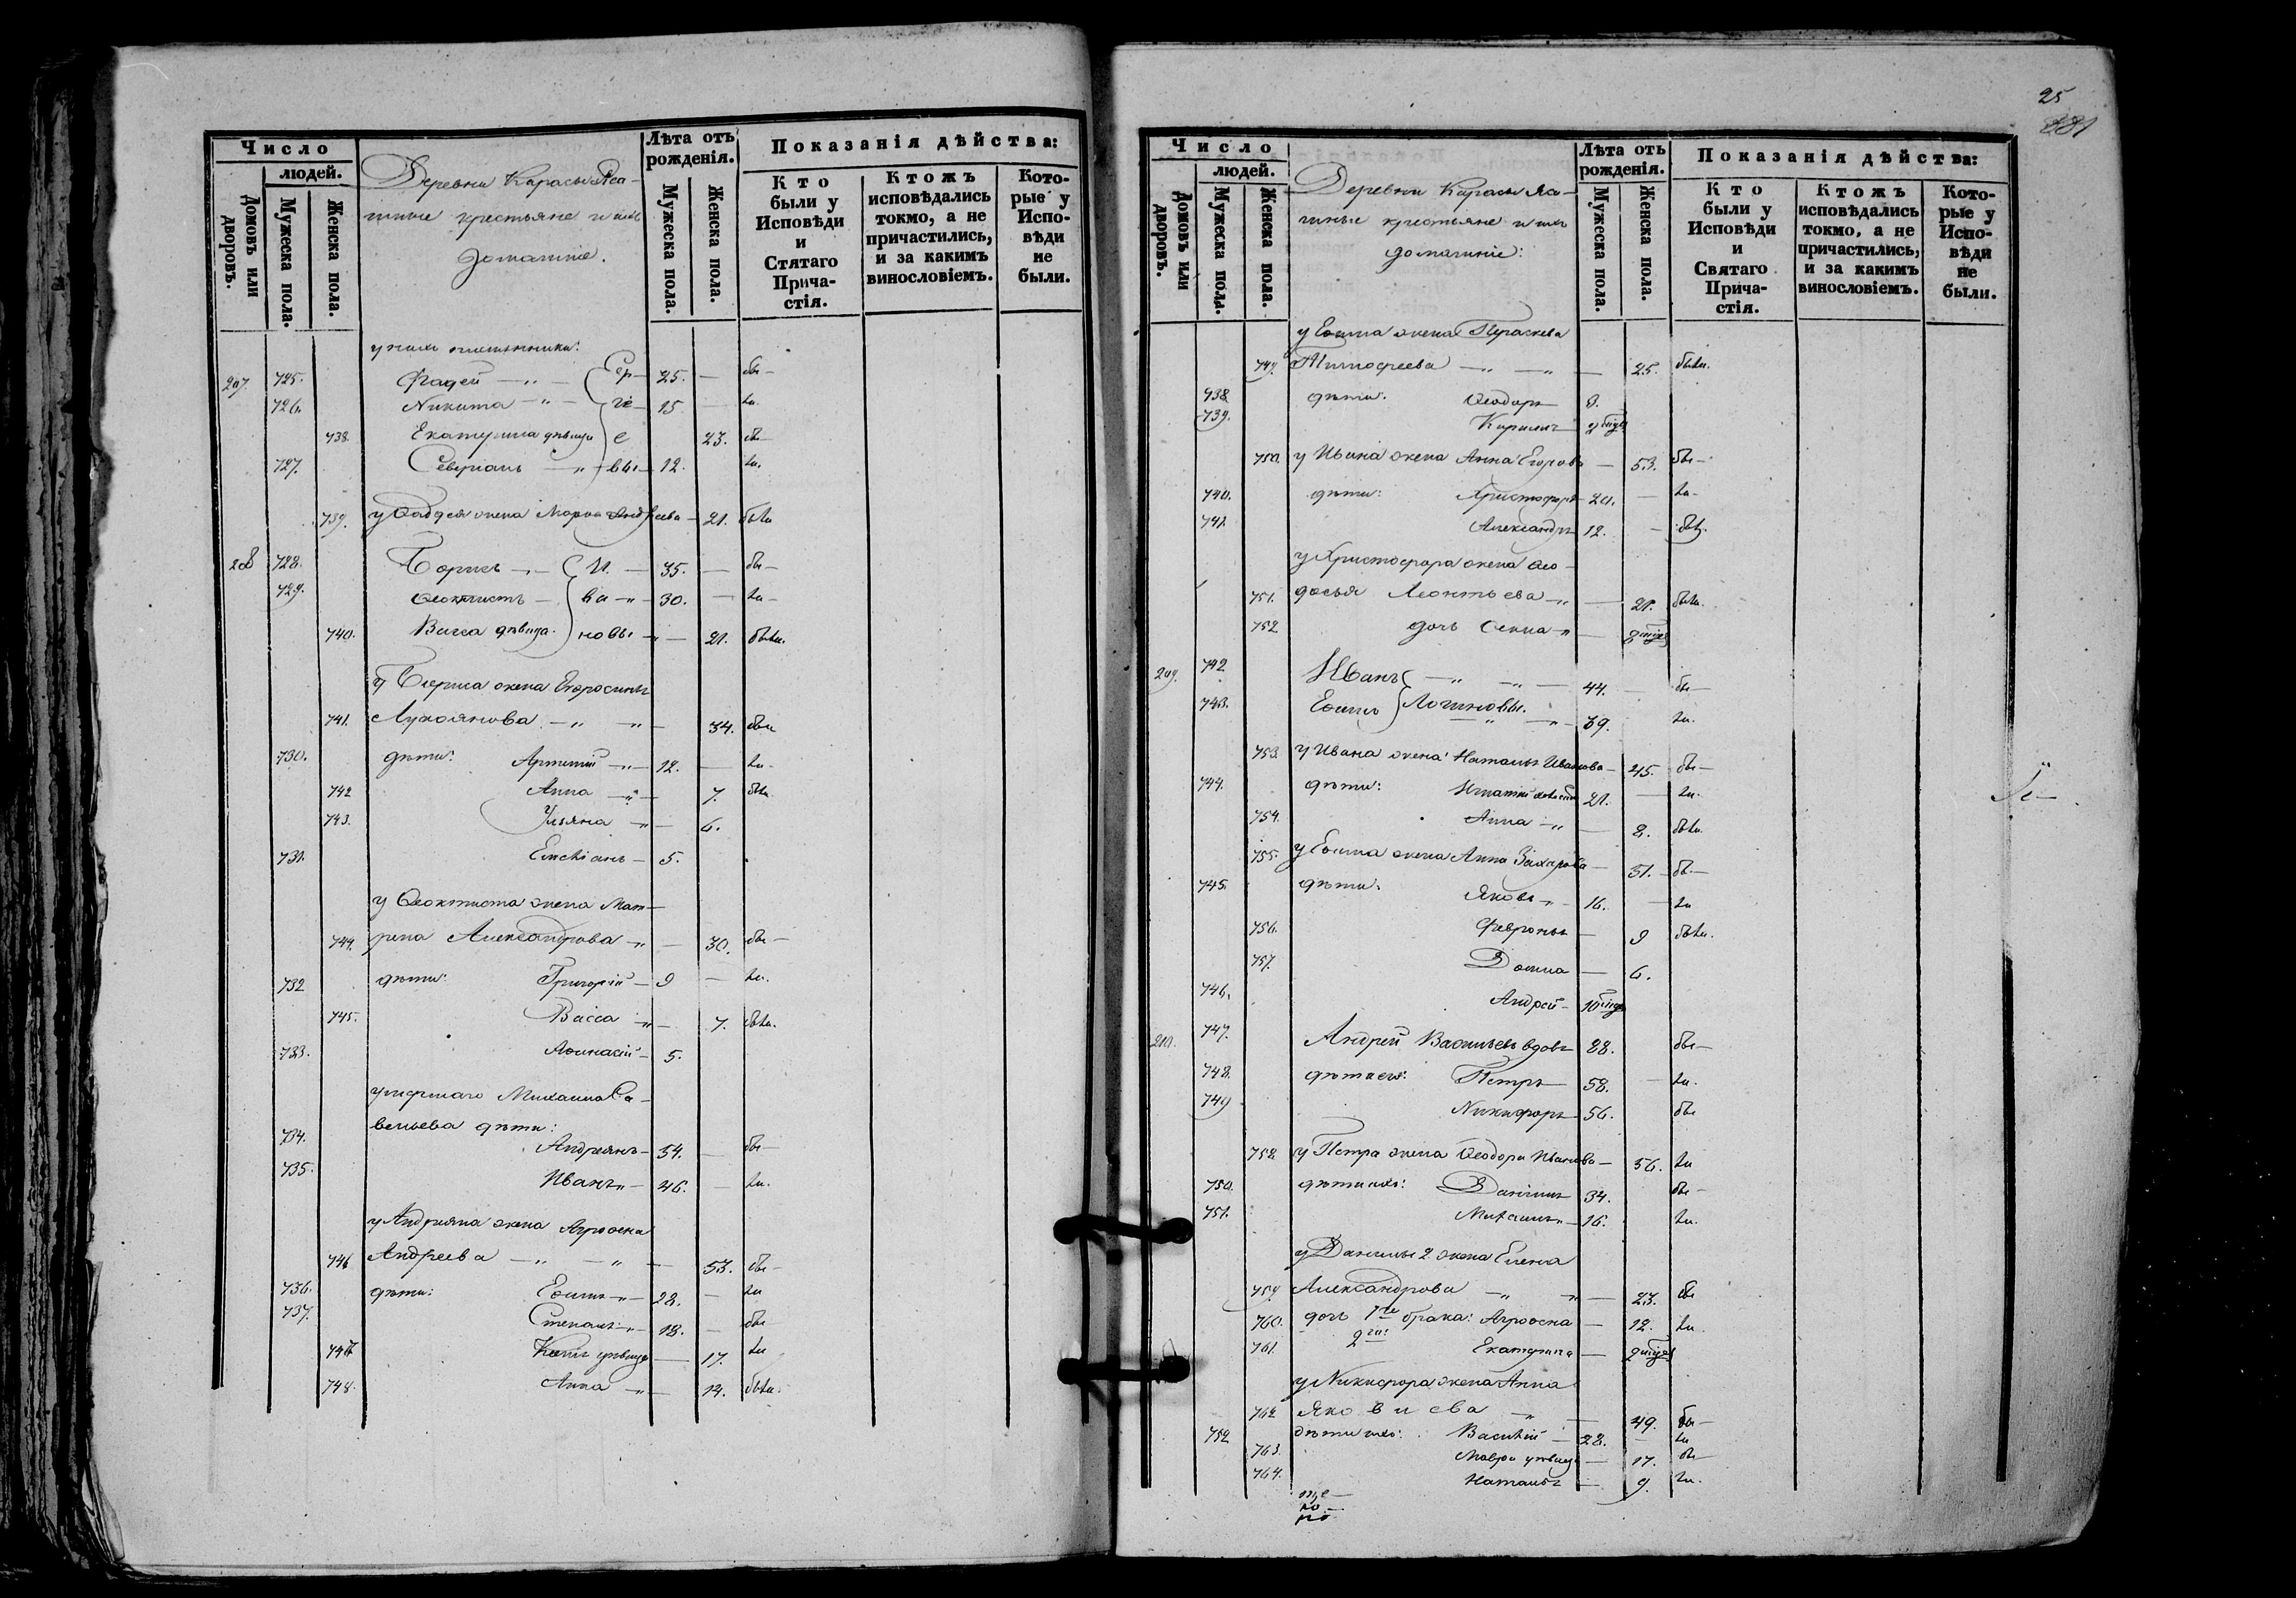 Число
людей.
Домовъ или дворовъ.
Мужеска пола.
Женска пола.
Деревни Карасы Яса-
шные крестьяне и ихъ
домашніе.
Лѣта отъ рожденія.
Мужеска пола.
Женска пола.
Показанія дѣйства:
Кто были у Исповѣди и Стятаго Прича-стія.
Ктожъ исповѣдались токмо, а не причастились, и за какимъ винословіемъ.
Кото-рые у Испо-вѣди не были.
у нихъ
207. 725. Фадей — „ — Ер — 25. — бы —
726. Никита — „ — ге — 15 — ли.
738. Екатерина дѣвица е 23. бы —
727. Северіанъ — „ — вы — 12. ли.
739. у Фаддея жена Марѳа Андреева — 21. были
208 728. Борисъ — „ — И. — 35. — бы —
729. Ѳеоктистъ — ва „ — 30. — ли —
740. Васса дѣвица. новы „ — 21. были.
у Бориса жена Евфросинья
741. Лукоянова — „ „ — 34. были
730. дѣти: Артемій — „ — 12. — ли —
742 Анна — „ — 7. были
743. Ульяна „ — 6.
731. Емеліанъ — 5.
у Ѳеоктиста жена Мат-
744. рена Александрова „ — 30. бы —
732 дѣти: Григорій — 9 — ли.
745. Васса „ — 7. были.
733. Аѳанасій — 5.
умершаго Михаила Са-
вельева дѣти:
734. Андреянъ — 54. — бы —
735. Иванъ „ — 46. — ли.
у Андрияна жена Агрофена
746 Андреева — „ — „ — 53. бы —
736. дѣти: Еѳимъ „ — 28. — ли
737. Степанъ „ — 18. — бы —
747 дѣвица — 17. ли
748. Анна „ — 14. были.
25
881
Число
людей.
Домовъ или дворовъ.
Мужеска пола.
Женска пола.
Деревни Карасы Яса-
шные крестьяне и ихъ
домашніе:
Лѣта отъ рожденія.
Мужеска пола.
Женска пола.
Показанія дѣйства:
Кто были у Исповѣди и Святаго Прича-стія.
Ктожъ исповѣдались токмо, а не причастились, и за какимъ винословіемъ.
Кото-рые у Испо-вѣди не были.
у Еѳима жена Параскева
749. Тимофеева — „ — „ — 25. были.
738 дѣти: Ѳеодоръ 3.
739. Кирилъ
750. у Ивана жена Анна Егорова — 53. бы —
740. дѣти: Христофоръ — 20. — ли —
741. Александръ 12. — были.
у Христофора жена Ѳео-
751. досья Леонтьева — „ — 21. были.
752 дочь „ —
209. 742 Иванъ — „ — „ — 44. — бы —
743. Еѳимъ Логиновы. — „ — „ — 39. ли.
753. у Ивана жена Наталья Иванова — 45. бы —
744. дѣти: Игнатій 21. — ли.
754. Анна — „ — 8. были.
755. у Еѳима жена Анна Захарова — 31. — бы —
745. дѣти: Яковъ „ — 16. — ли
756. Февронья — 9 были.
757. Домна — 6.
746. Андрей —
210. 747. Андрей Васильевъ вдовъ 88. бы —
748. дѣти его: Петръ — 58. — ли.
749 Никифоръ — 56. бы
758 у Петра жена Ѳеодора Иванова — 56. ли
750. дѣти ихъ: Даніилъ 34. бы —
751. Михаилъ „ — 16. ли.
у Данилы 2. жена Елена
759. Александрова „ „ — 23. бы
760. дочь 1го брака: Агрофена — 12. ли.
761. 2го: Екатерина —
у Никифора жена Анна
762 Яковлева „ — 49. бы —
752 дѣти ихъ: Василій — 28. — ли
763. Мавра дѣвица — 17. бы —
764. Наталья — 9. ли.